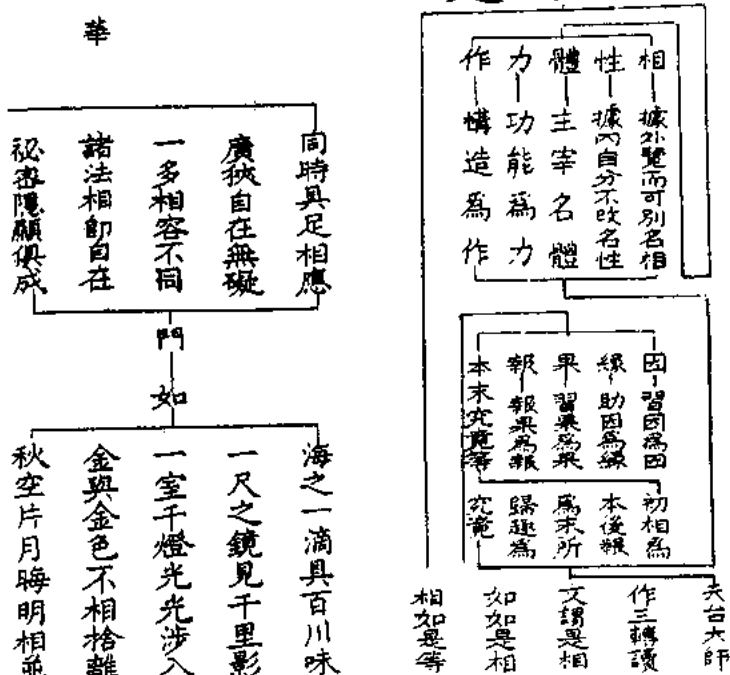 相 據外覽而可別名相
性 據內自分不改名性
體 主宰名體
力 功能為力
作 構造為作
因 習因為因
緣 助因為緣
果 習果為果
報 報果為報
本末究竟等
初相為
本後報
為末所
歸趣為
究竟
天台大師
作三轉讀
文謂是相
如如是相
相如是等
華
同時具足相應
廣狹自在無礙
一多相容不同
諸法相即自在
祕密隱顯俱成
門
如
海之一滴具百川味
一尺之鏡見千里影
一室千燈光光涉入
金與金色不相捨離
秋空片月晦明相並